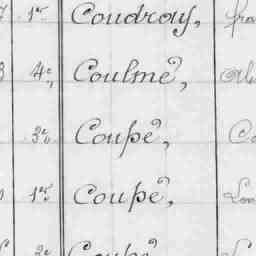 1er Coudray,
4e, Coulmé,
3e, Coupé,
1er Coupé,
2e